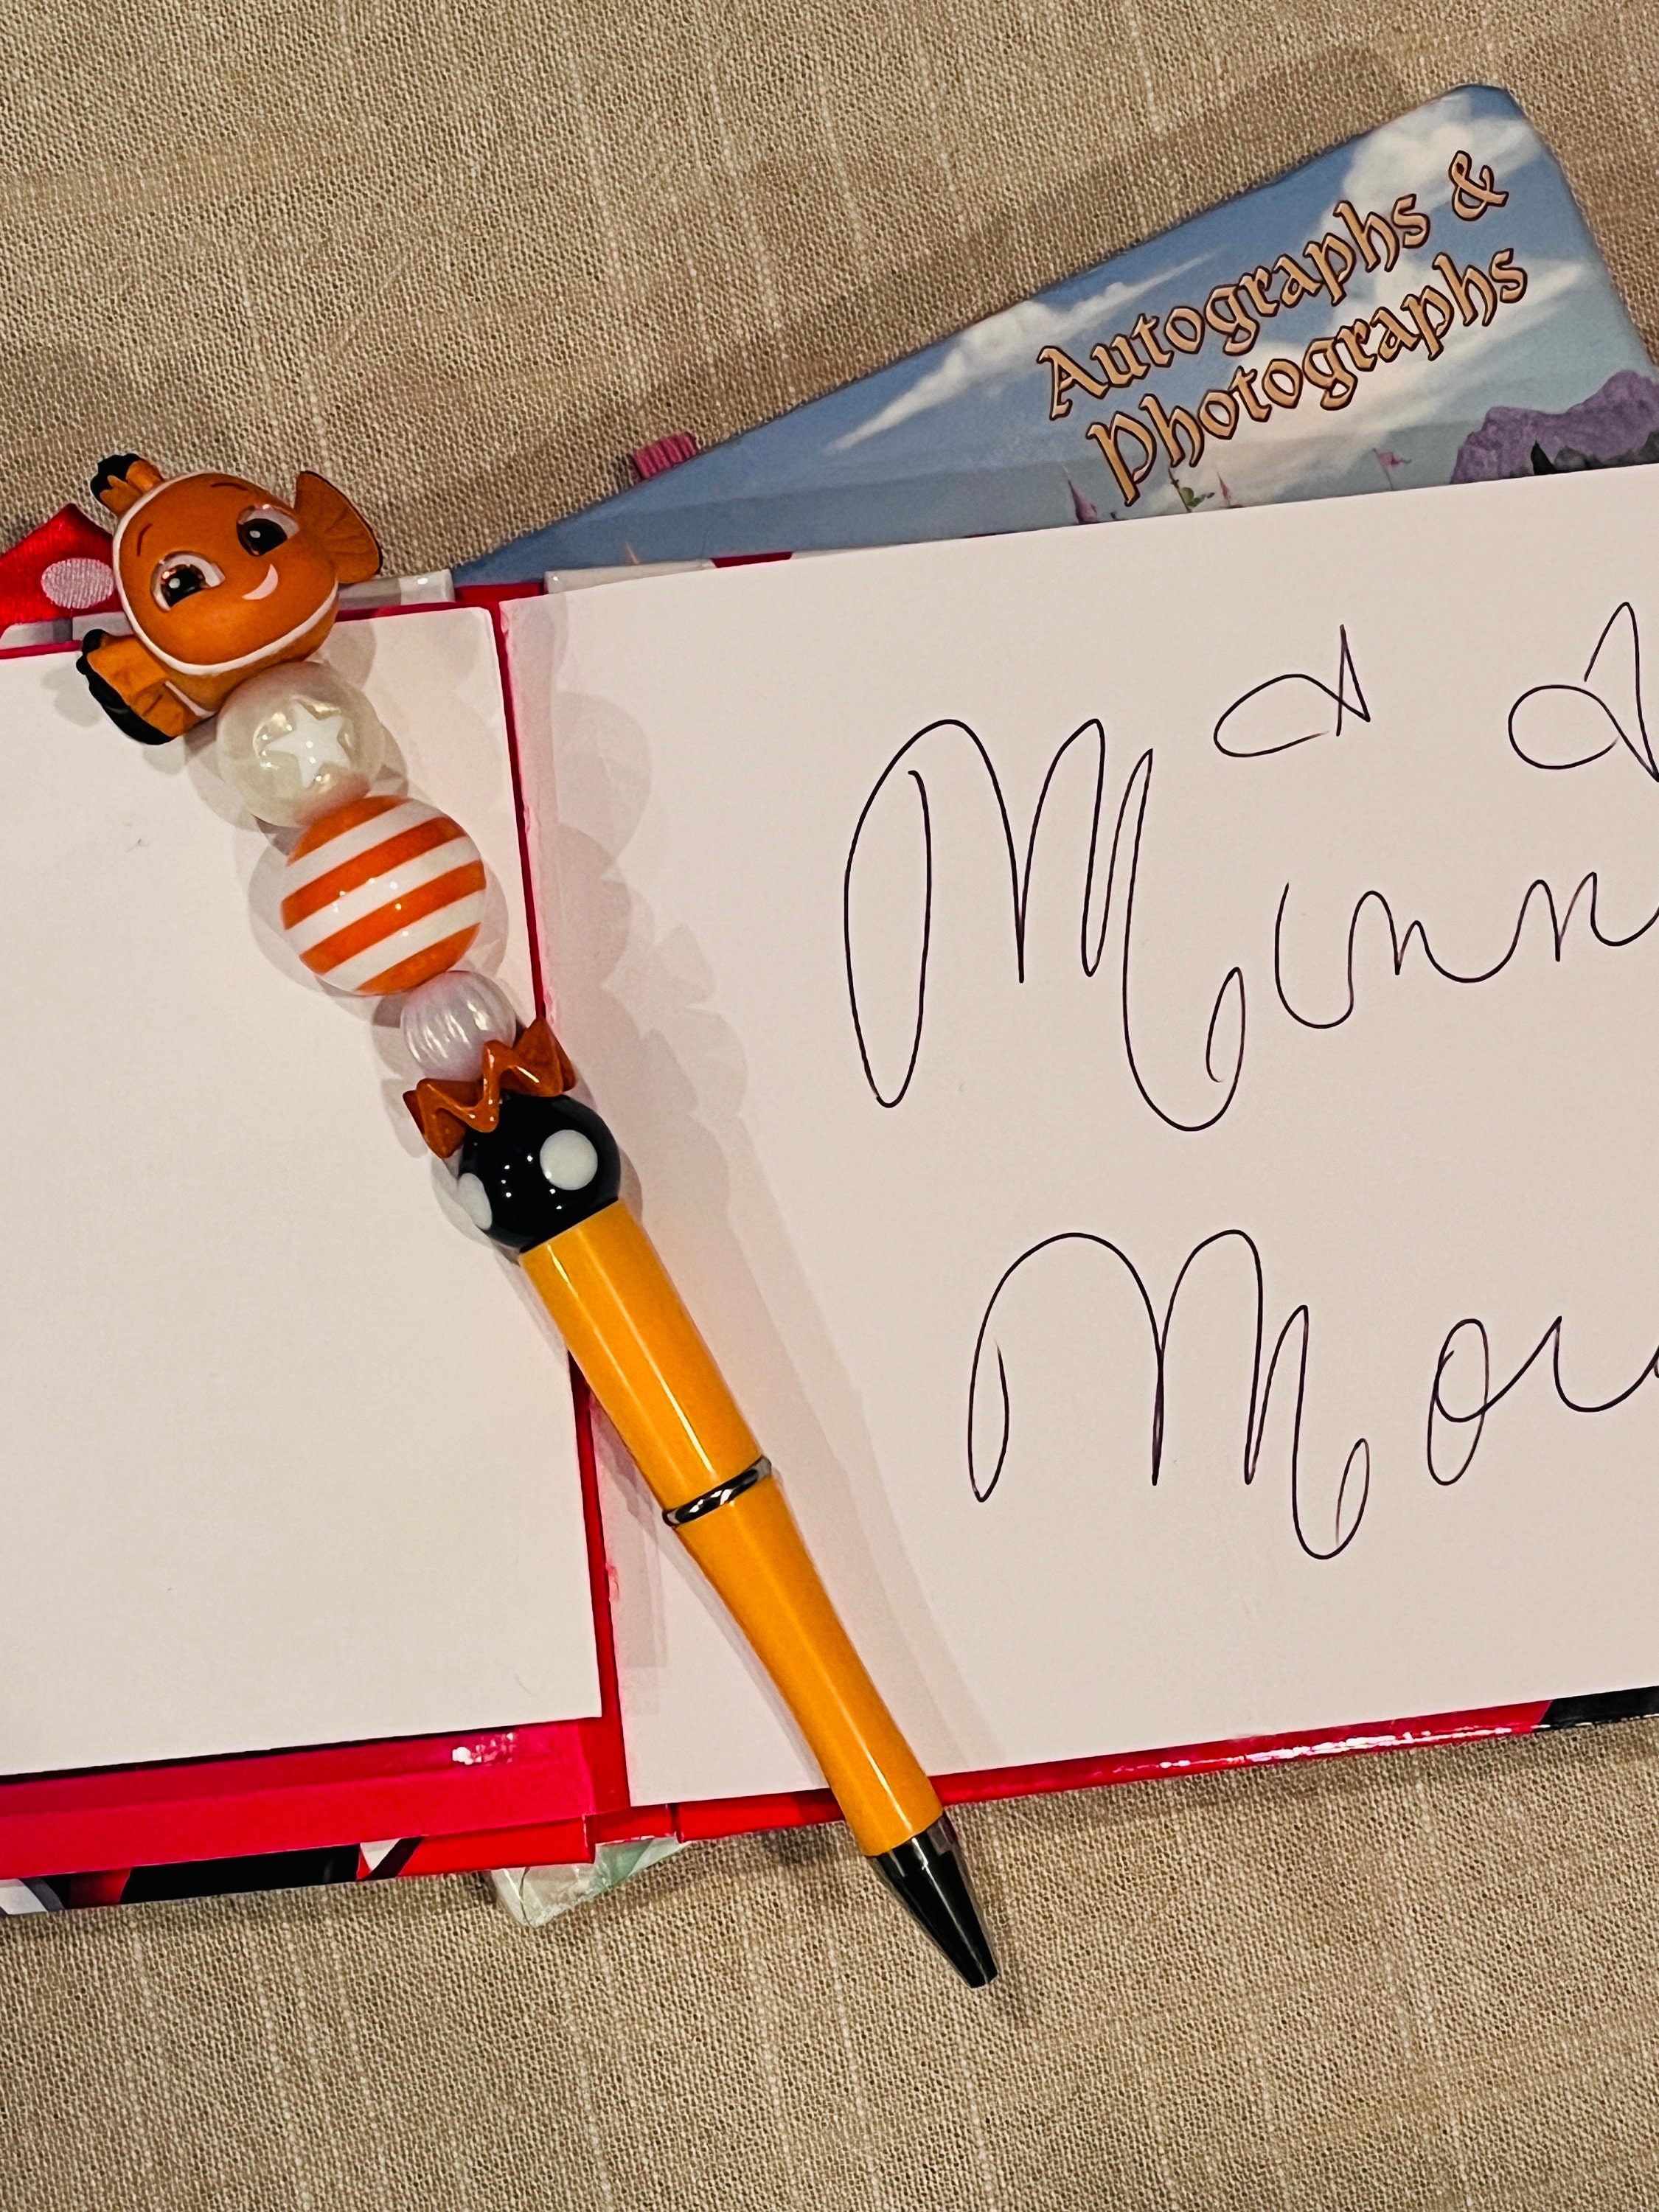 Autographs &
Photographs
Minn
Mou